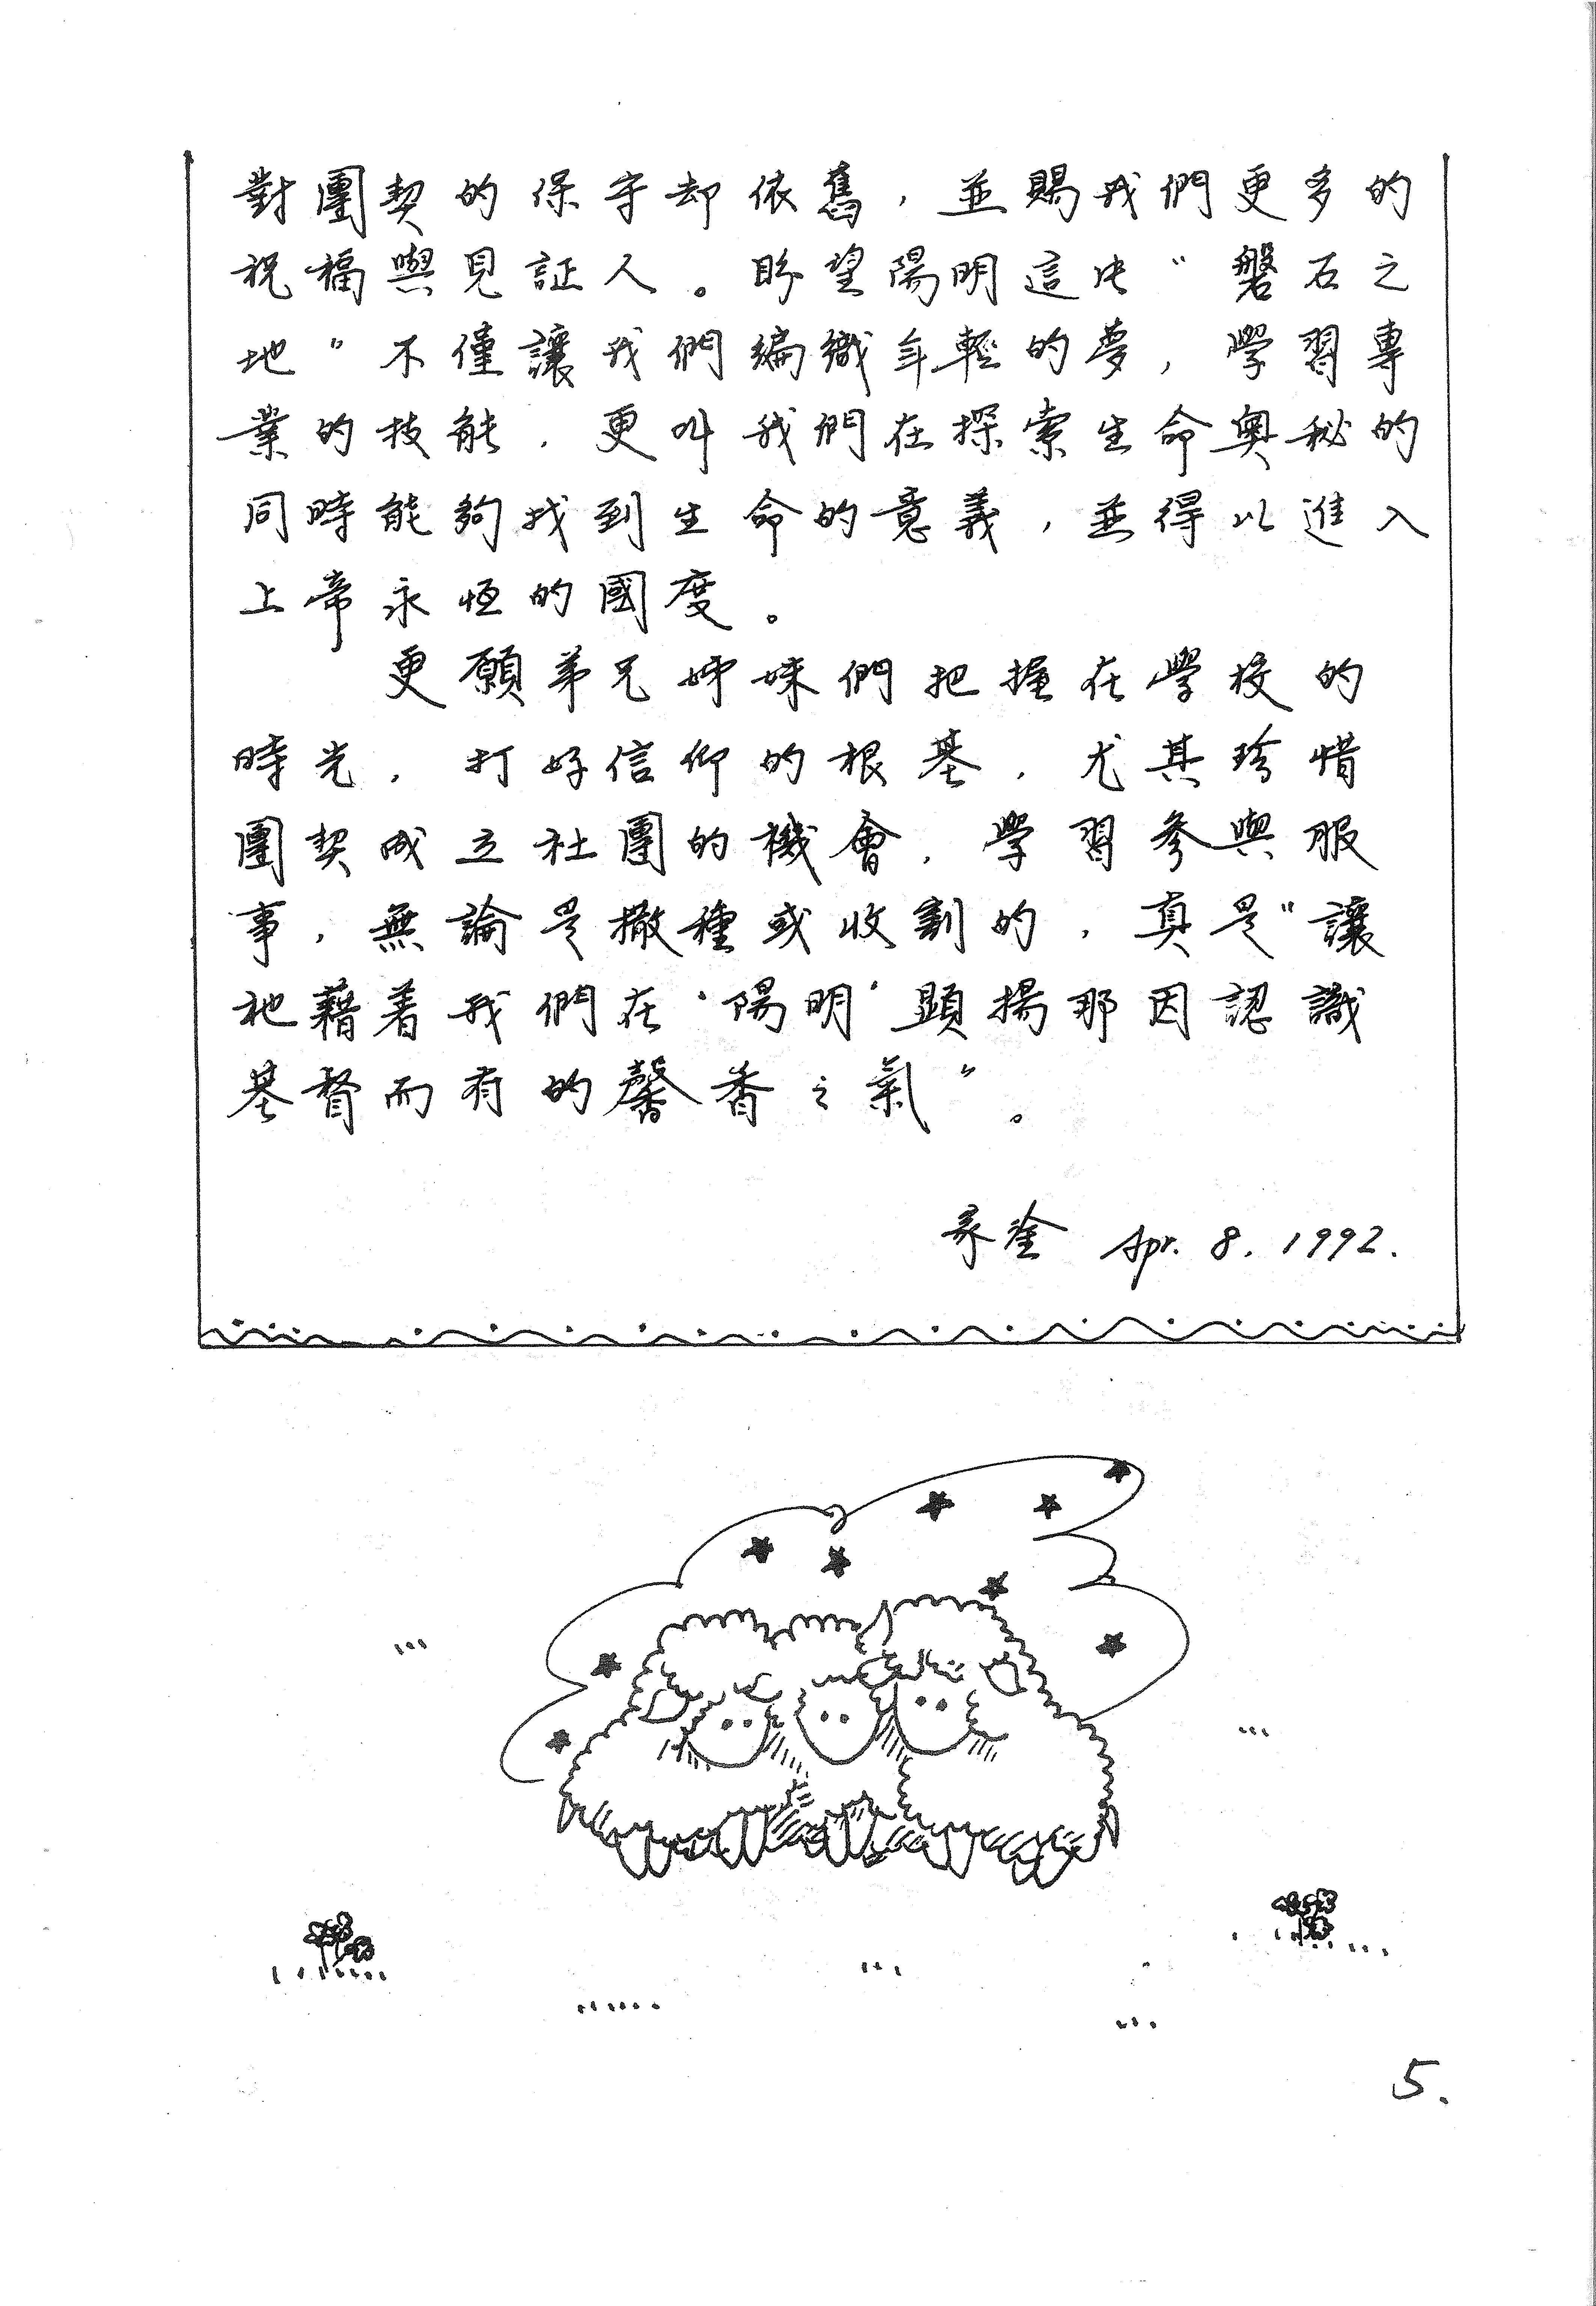 對團契的保守却依舊，並賜我們更多的
祝福與見証人。盼望陽明這片"磐石之
地"不僅讓我們編織年輕的夢，學習專
業的技能，更叫我們在探索生命奧秘的
同時能夠找到生命的意義，並得以進入
上帝永恆的國度。
更願弟兄姊妹們把握在學校的
時光，打好信仰的根基，尤其珍惜
團契成立社團的機會，學習參與服
事，無論是撒種或收割的，真是"讓
祂藉着我們在'陽明'顯揚那因認識
基督而有的馨香之氣"。
家 Apr. 8. 1992.
5.